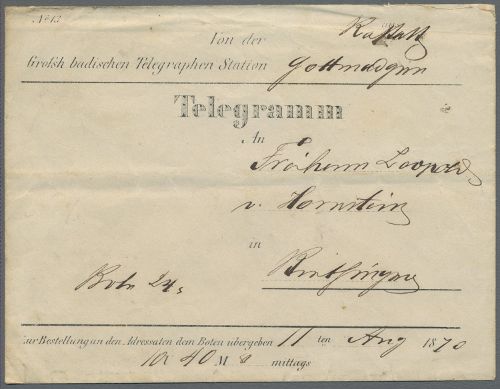 No 13
Von der
aus Rastatt
Großh badischen Telegraphen Station Gottmadgen
Telegramm
An
Freiherrn Leopold
v. Hornstein
in
Binthingen
Boten 24
zur Bestellung an den Adressaten dem Boten übergeben 11 ten Aug 1870
10 U 40 M a mittags